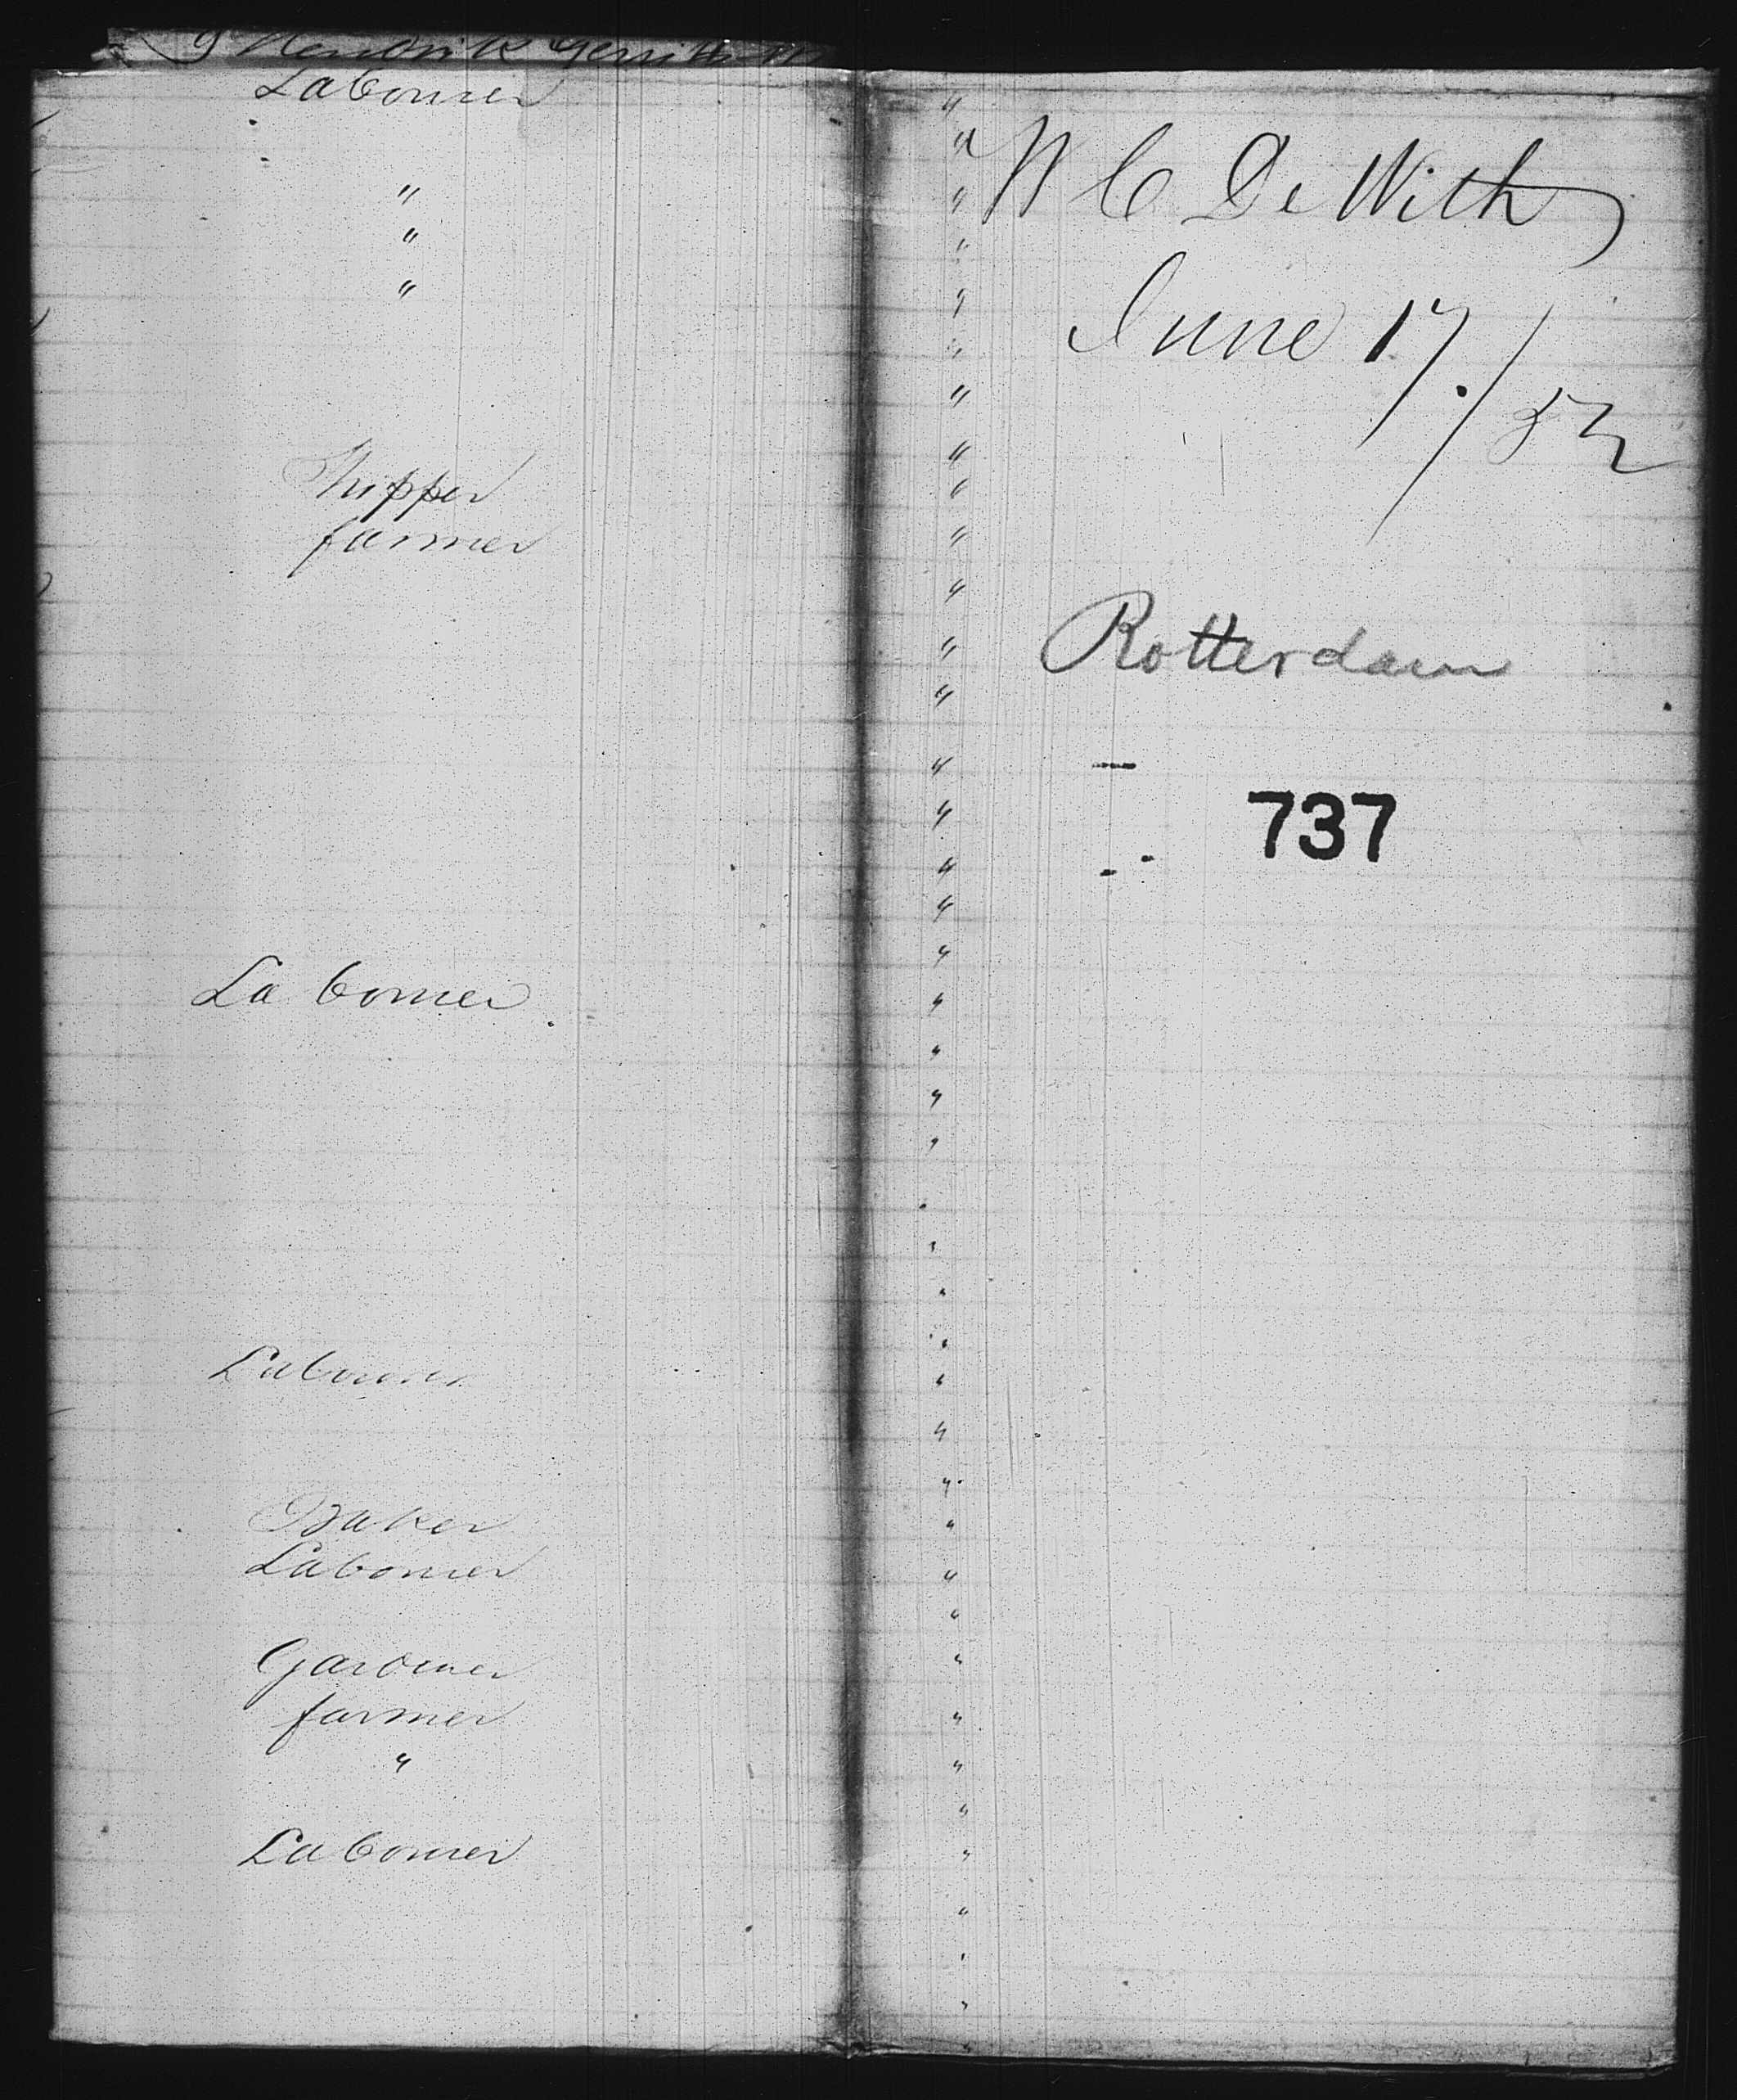 Hendrik Gerrit
Labourer
"
"
"
farmer
Labourer
Labourer
Baker
Labourer
Gardener
farmer
"
Labourer
W C De With
June 17. / 52
Rotterdam
737